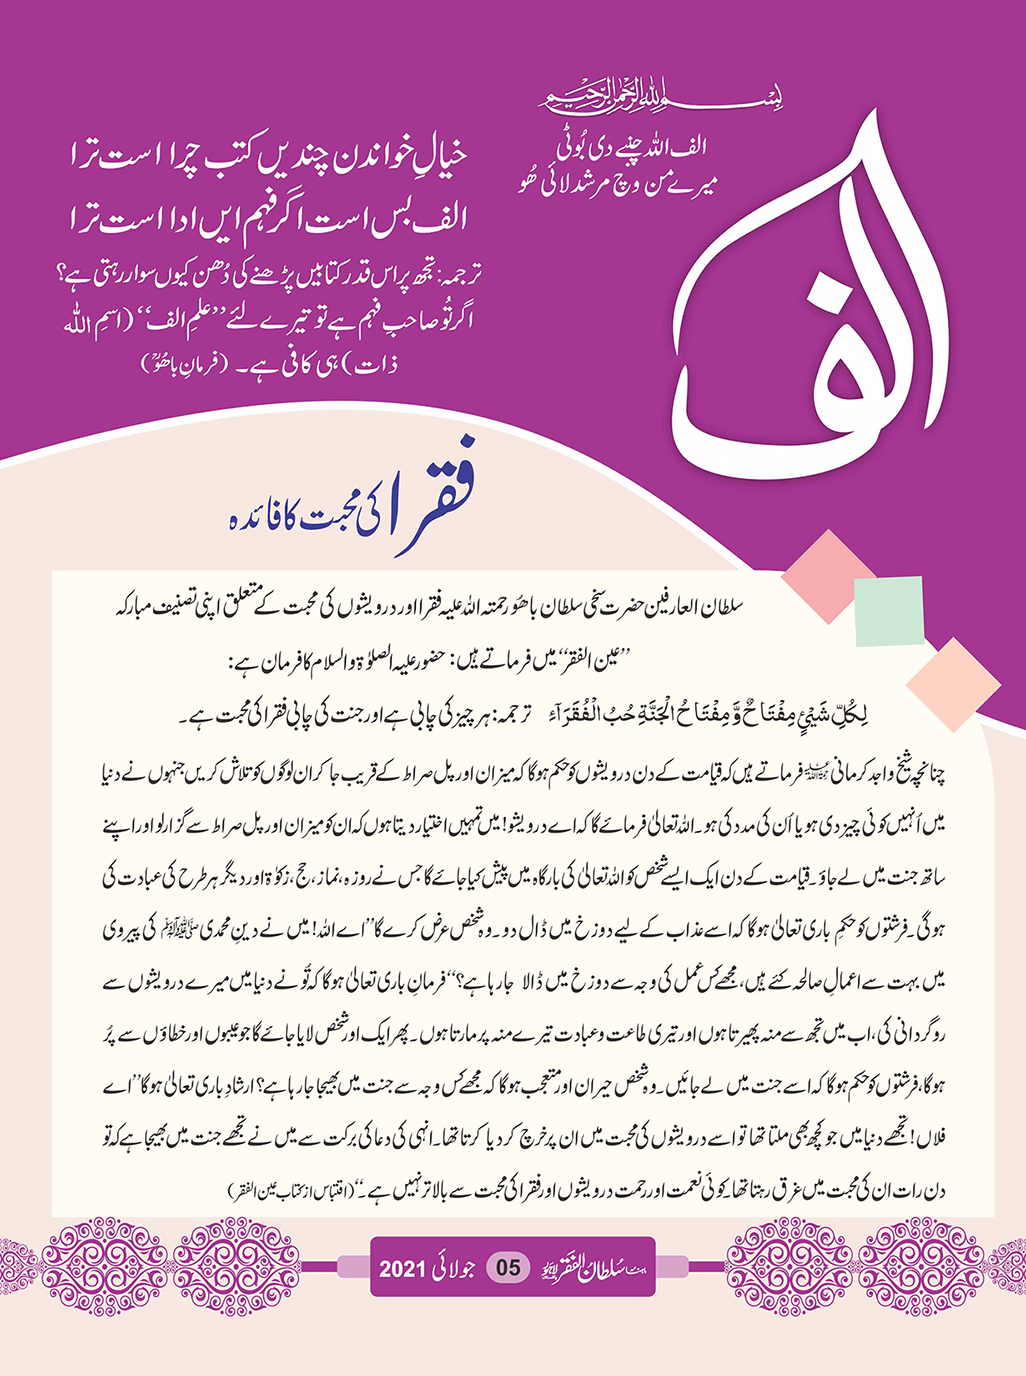 بِسْمِ اللہِ الرَّحْمٰنِ الرَّحِیْمِ
الف اللہ چنبے دی بُوٹی
میرے من وِچ مرشد لائی ھُو
الف
خیالِ خواندن چندیں کتب چرا است ترا
الف بس است اگر فہم ایں ادا است ترا
ترجمہ: تجھ پر اس قدر کتابیں پڑھنے کی دُھن کیوں سوار رہتی ہے؟
اگر تُو صاحبِ فہم ہے تو تیرے لئے ’’علمِ الف‘‘ (اسمِ اللہ
ذات) ہی کافی ہے۔ (فرمانِ باھُوؒ)
فقرا کی محبت کا فائدہ
سلطان العارفین حضرت سخی سلطان باھُو رحمتہ اللہ علیہ فقرا اور درویشوں کی محبت کے متعلق اپنی تصنیف مبارکہ
’’عین الفقر‘‘ میں فرماتے ہیں: حضور علیہ الصلوٰۃ والسلام کا فرمان ہے:
لِکُلِّ شَیْئٍ مِفْتَاحٌ وَّ مِفْتَاحُ الْجَنَّۃِ حُبُ الْفُقَرَآءَ ترجمہ: ہر چیز کی چابی ہے اور جنت کی چابی فقرا کی محبت ہے۔
چنانچہ شیخ واجد کرمانی رحمۃ اللہ علیہ فرماتے ہیں کہ قیامت کے دن درویشوں کو حکم ہوگا کہ میزان اور پل صراط کے قریب جا کر ان لوگوں کو تلاش کریں جنہوں نے دنیا
میں اُنہیں کوئی چیز دی ہو یا اُن کی مدد کی ہو۔ اللہ تعالیٰ فرمائے گا کہ اے درویشو! میں تمہیں اختیار دیتا ہوں کہ ان کو میزان اور پل صراط سے گزار لو اور اپنے
ساتھ جنت میں لے جاؤ۔ قیامت کے دن ایک ایسے شخص کو اللہ تعالیٰ کی بارگاہ میں پیش کیا جائے گا جس نے روزہ، نماز، حج، زکوٰۃ اور دیگر ہر طرح کی عبادت کی
ہوگی۔ فرشتوں کو حکمِ باری تعالیٰ ہوگا کہ اسے عذاب کے لیے دوزخ میں ڈال دو۔ وہ شخص عرض کرے گا ’’اے اللہ! میں نے دینِ محمدی صلی اللہ علیہ وآلہ وسلم کی پیروی
میں بہت سے اعمالِ صالحہ کئے ہیں، مجھے کس عمل کی وجہ سے دوزخ میں ڈالا جا رہا ہے؟‘‘ فرمانِ باری تعالیٰ ہوگا کہ تُو نے دنیا میں میرے درویشوں سے
روگردانی کی، اب میں تجھ سے منہ پھیرتا ہوں اور تیری طاعت و عبادت تیرے منہ پر مارتا ہوں۔ پھر ایک اور شخص لایا جائے گا جو عیبوں اور خطاؤں سے پُر
ہوگا، فرشتوں کو حکم ہوگا کہ اسے جنت میں لے جائیں۔ وہ شخص حیران اور متعجب ہوگا کہ مجھے کس وجہ سے جنت میں بھیجا جا رہا ہے؟ ارشادِ باری تعالیٰ ہوگا ’’اے
فلاں! تجھے دنیا میں جو کچھ بھی ملتا تھا تو اسے درویشوں کی محبت میں ان پر خرچ کر دیا کرتا تھا۔ انہی کی دعا کی برکت سے میں نے تجھے جنت میں بھیجا ہے کہ تو
دن رات ان کی محبت میں غرق رہتا تھا۔ کوئی نعمت اور رحمت درویشوں اور فقرا کی محبت سے بالاتر نہیں ہے۔‘‘ (اقتباس از کتاب عین الفقر)
ماہنامہ سُلطان الفَقر لاہور 05 جولائی 2021